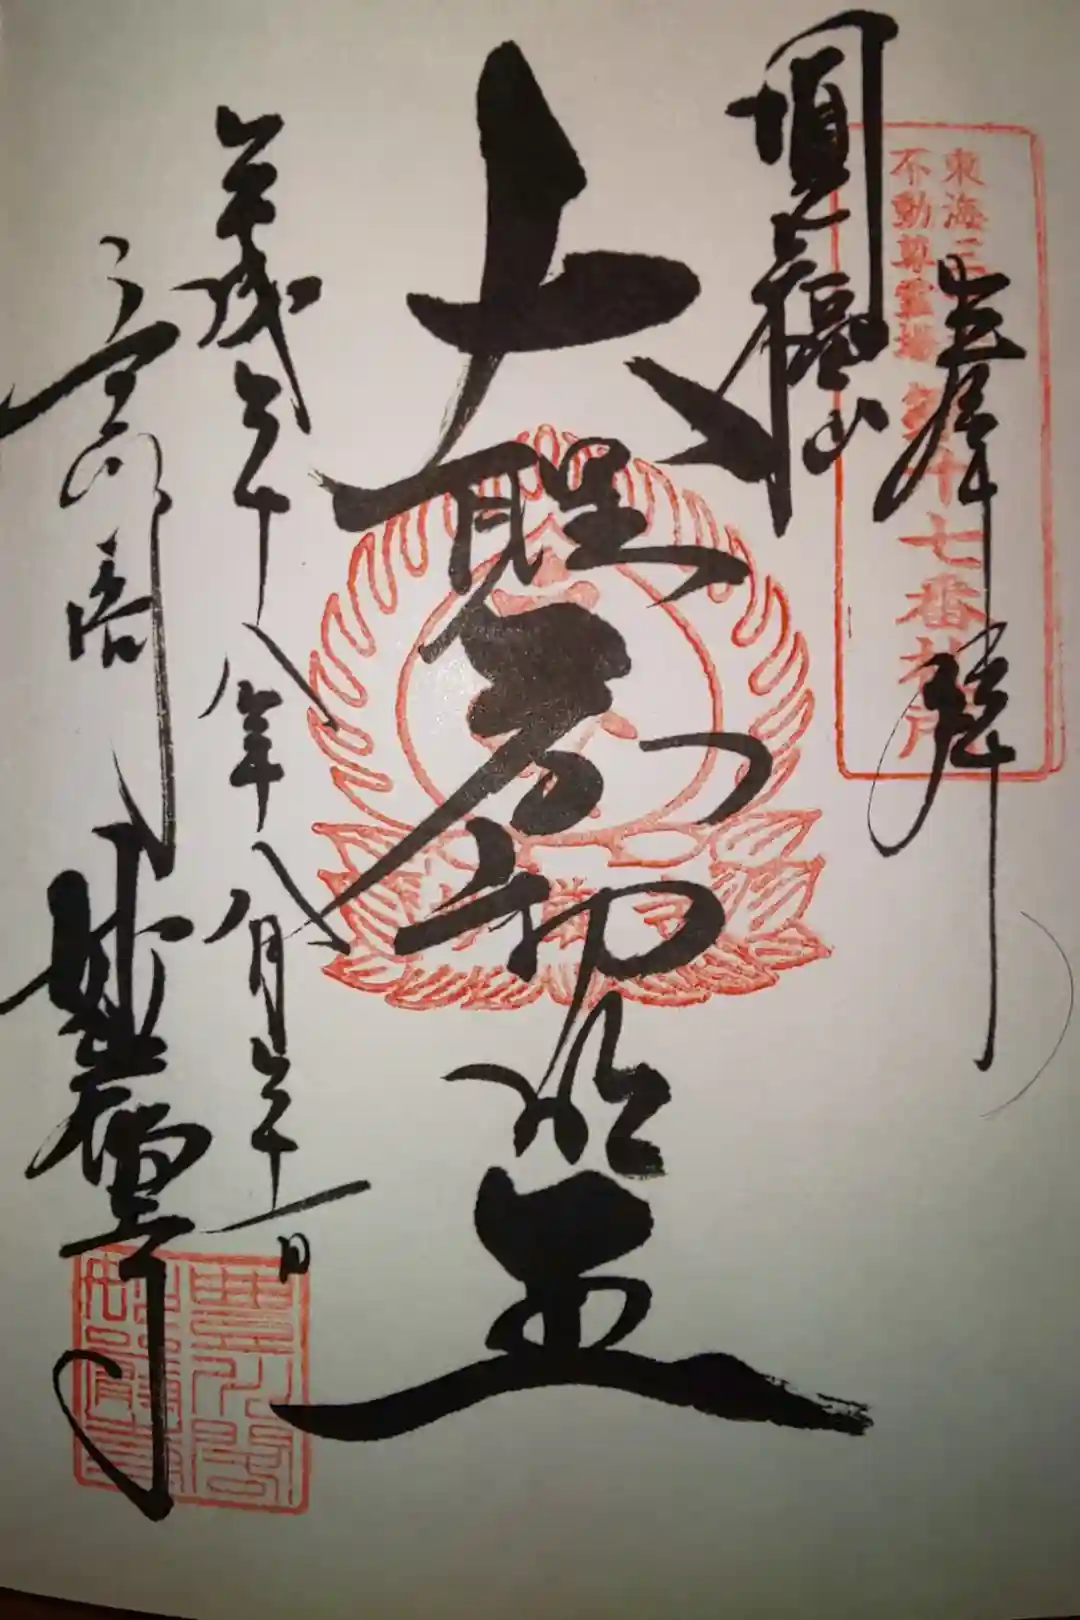 奉拝
東海三十六
不動尊霊場
第十七番札所
圓福山
大聖不動明王
平成二十八年八月二十一日
豊川閣 妙嚴寺